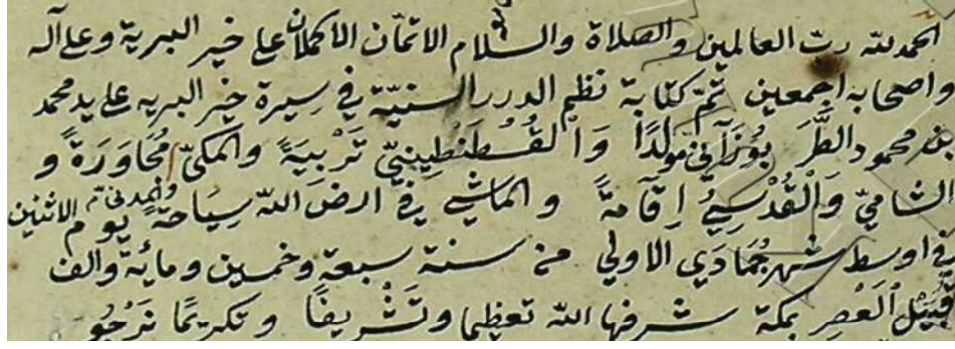 الحمد لله رب العالمين والصلاة والسلام الاتمّان الاكملان على خير البرية وعلى آله
واصحابه اجمعين تمّ كتابة نظم الدرر السنيّة في سيرة خير البريه على يد محمد
بن محمود الطَّرَبُوزَانِي مولدًا وَالقُسْطَنْطِينِيّ تَرْبِيَةً والمكيّ مُجَاوَرَةً و
الشاميّ وَالْقُدْسِيُّ اِقَامَةً والماشي في ارض الله سِيَاحَةً يوم الاثنين
في اوسط شهر جُمَادَي الاولي من سنة سبعة وخمسين ومائة والف
قُبَيْلَ الْعَصْرِ بمكة شرفها الله تعظيما وتَشْرِيفًا وتكريمًا نَرْجُو